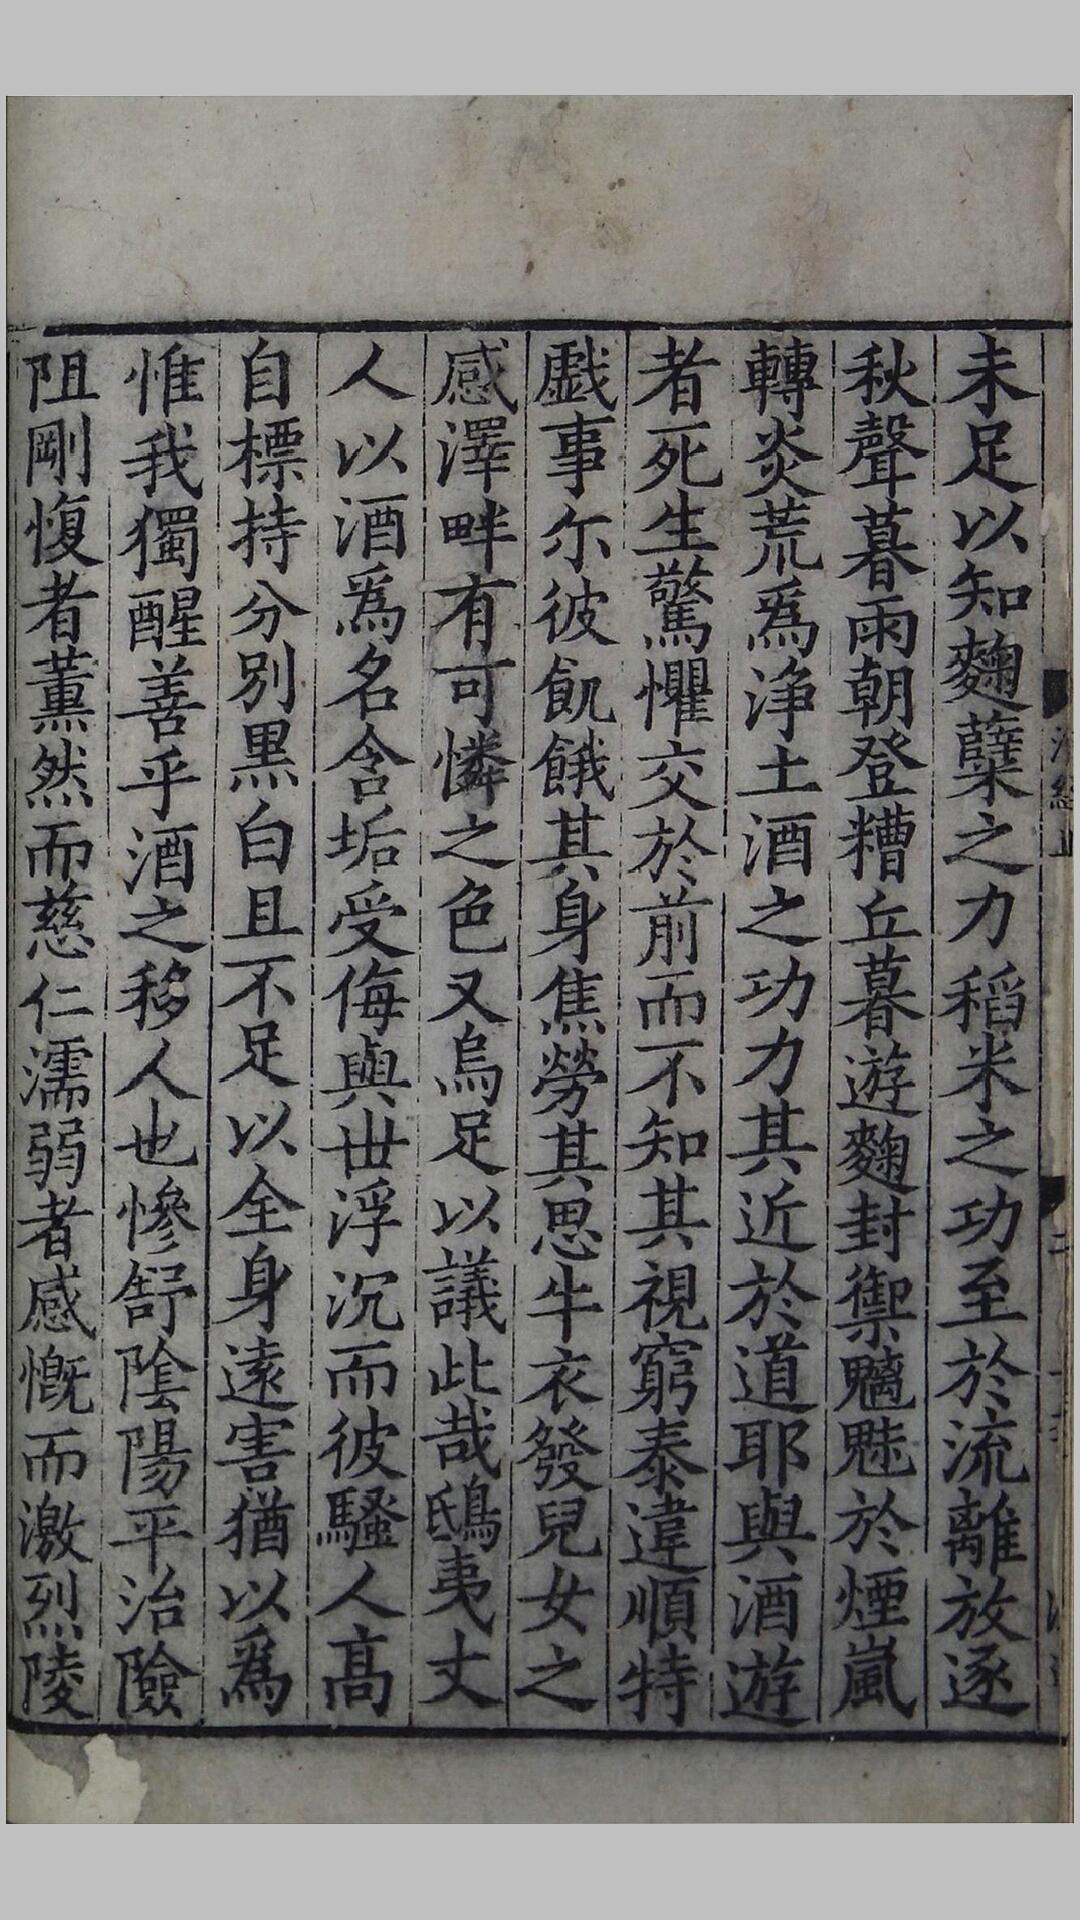 未足以知麴蘖之力稻米之功至於流離放逐
秋聲暮雨朝登糟丘暮遊麴封禦魑魅於煙嵐
轉炎荒爲淨土酒之功力其近於道耶與酒遊
者死生驚懼交於前而不知其視窮泰違順特
戲事尓彼飢餓其身焦勞其思牛衣發兒女之
感澤畔有可憐之色又烏足以議此哉鴟夷丈
人以酒爲名含垢受侮與丗浮沉而彼騷人髙
自標持分别黒白且不足以全身逺害猶以爲
惟我獨醒善乎酒之移人也慘舒陰陽平治險
阻剛愎者薰然而慈仁濡弱者感慨而激烈陵